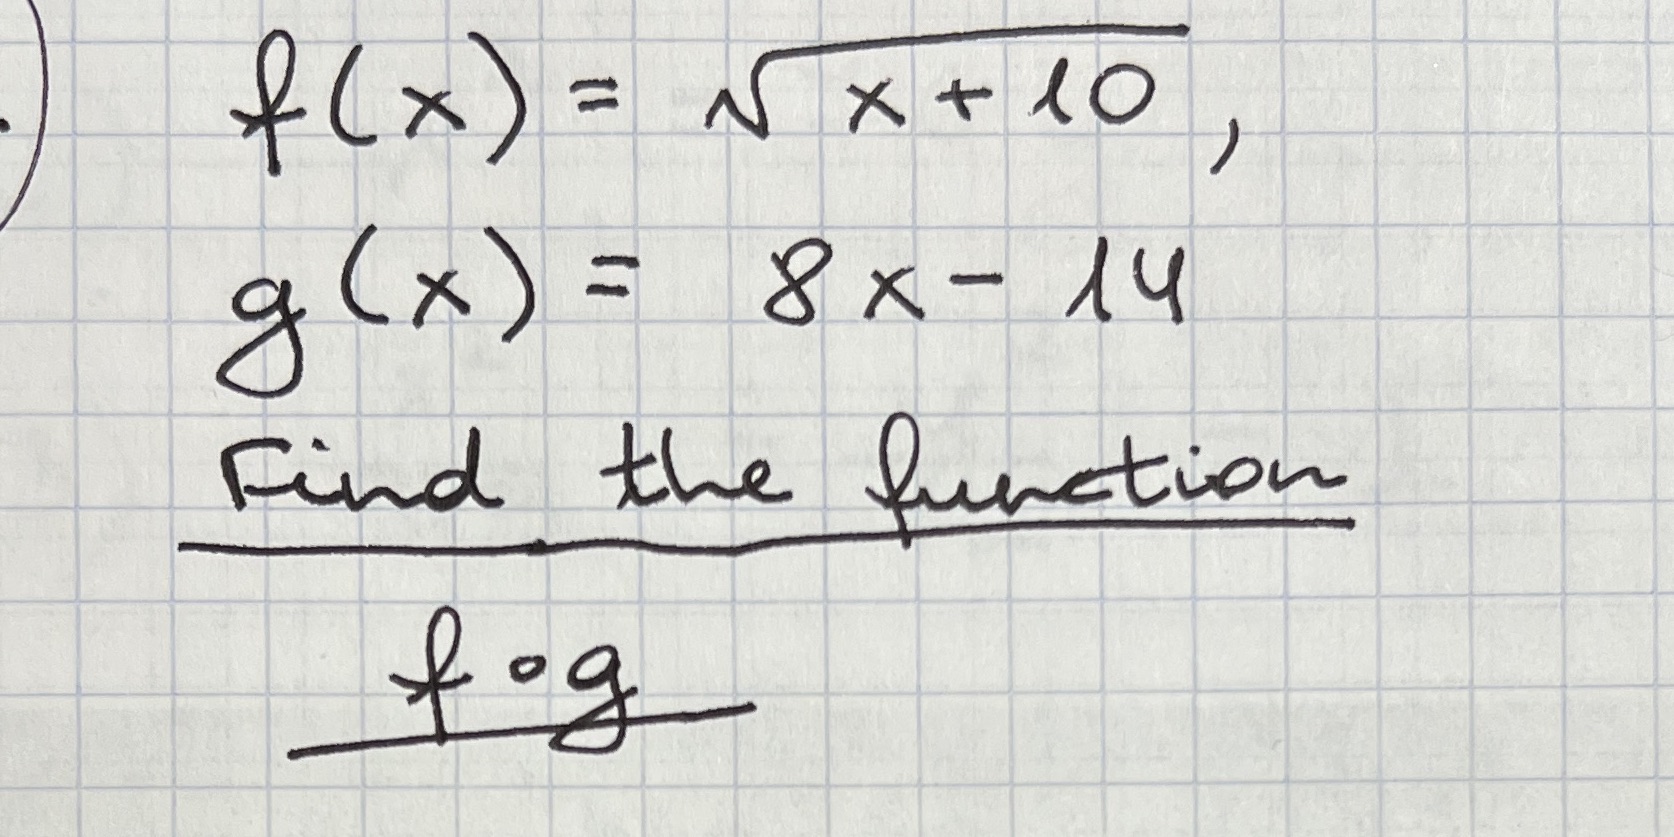 f(x) = √x+10,
g(x) = 8x-14
Find the function
f∘g